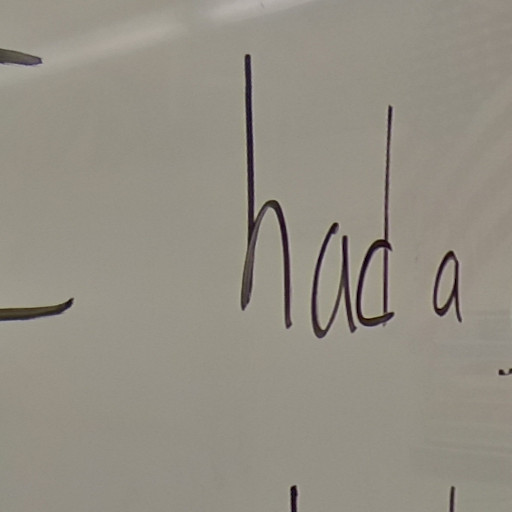 had a